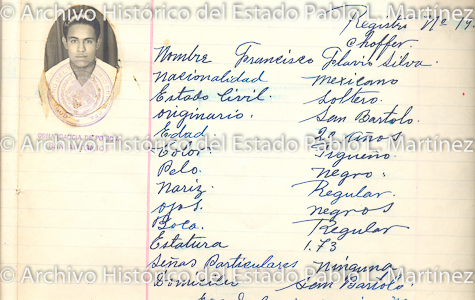 © Archivo Histórico del Estado Pablo L. Martínez
Registro Nº 19
Choffer
Nombre Francisco Flavio Silva.
Nacionalidad Mexicano
Estado Civil. Soltero.
originario. San Bartolo.
Edad. años
Color. Trigueño.
Pelo. negro.
Nariz. Regular.
ojos. negros
Boca. Regular
Estatura 1.73
Señas Particulares Ninguna
Domicilio San Bartolo.
© Archivo Histórico del Estado Pablo L. Martínez
© Archivo Histórico del Estado Pablo L. Martínez
© Archivo Histórico del Estado Pablo L. Martínez